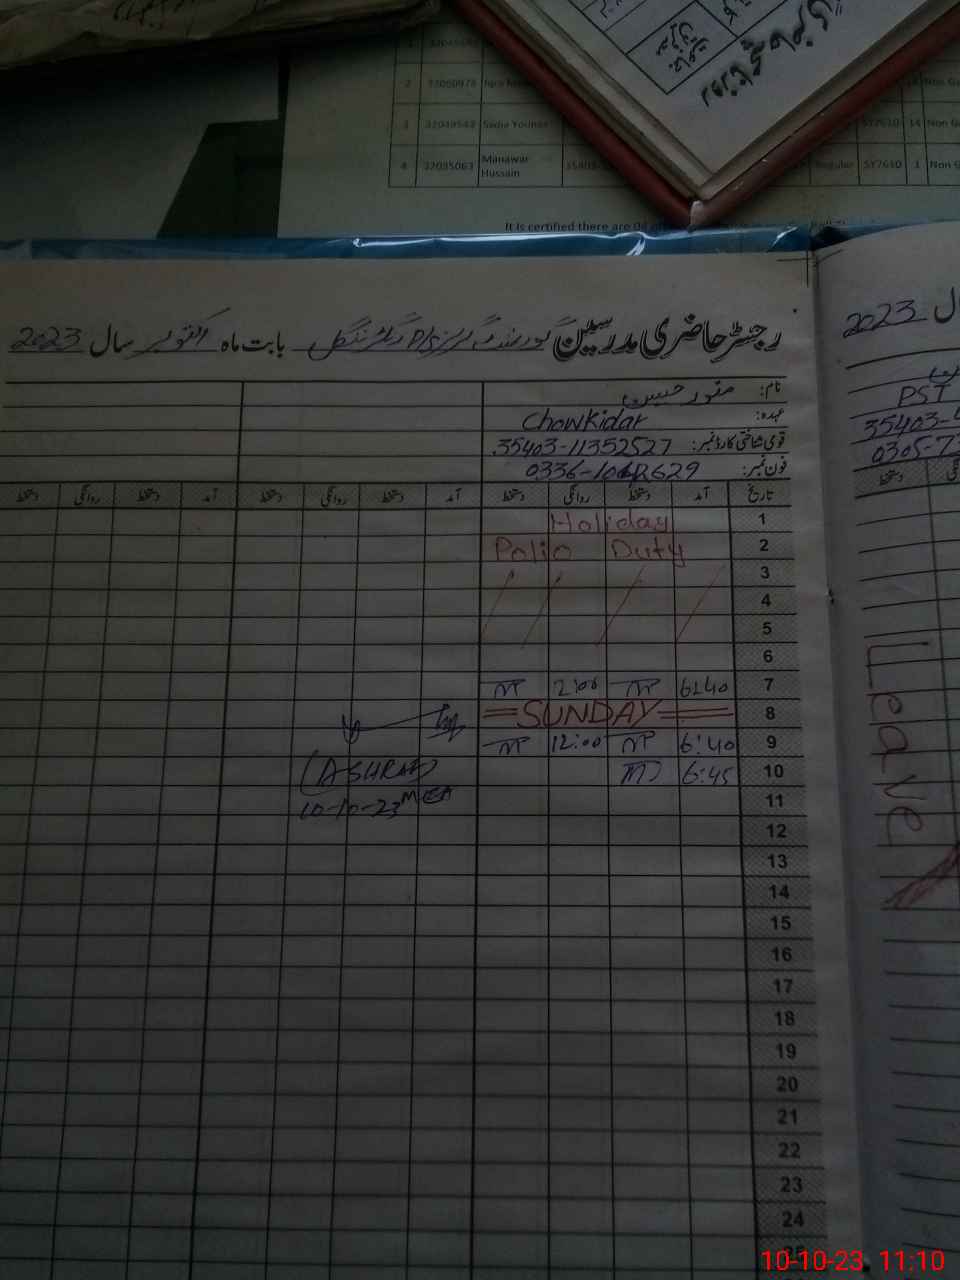 روزنامچہ حاضری
1
2 32060978
3 32049548 Sadia Younas SY7610 14 Non
4 32095063 Manawar Hussain 35403- Regular SY7610 1 Non
It is certified there are 04
رجسٹر حاضری مدرسین گورنمنٹ گرلز P/S بابت ماہ اکتوبر سال 2023
نام: منور حسین
عہدہ: Chowkidar
قومی شناختی کارڈ نمبر: 35403-11352527
فون نمبر:
تاریخ آمد دستخط روانگی دستخط آمد دستخط روانگی دستخط آمد دستخط روانگی دستخط
1 Holiday
2 Polio Duty
3
4
5
6
7 6:40 2:00
8 SUNDAY
9 6:40 12:00
10 6:45
(ASHRAF)
MEA
10-10-23
11
12
13
14
15
16
17
18
19
20
21
22
23
24
25
ل 2023
PST
35403-
0305-7
دستخط
Leave
10-10-23 11:10